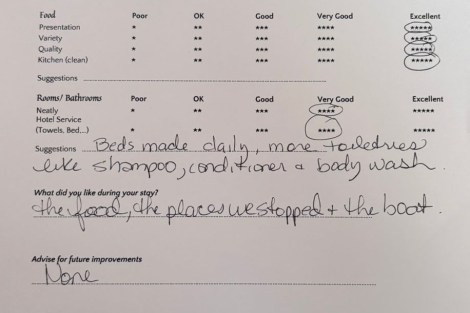 Food Poor OK Good Very Good Excellent
Presentation * ** *** **** *****
Variety * ** *** **** *****
Quality * ** *** **** *****
Kitchen (clean) * ** *** **** *****
Suggestions
Rooms/ Bathrooms Poor OK Good Very Good Excellent
Neatly * ** *** **** *****
Hotel Service
(Towels, Bed...) * ** *** **** *****
Suggestions Beds made daily, more toiledries
like shampoo, conditioner & body wash.
What did you like during your stay?
the food, the places we stopped + the boat.
Advise for future improvements
None